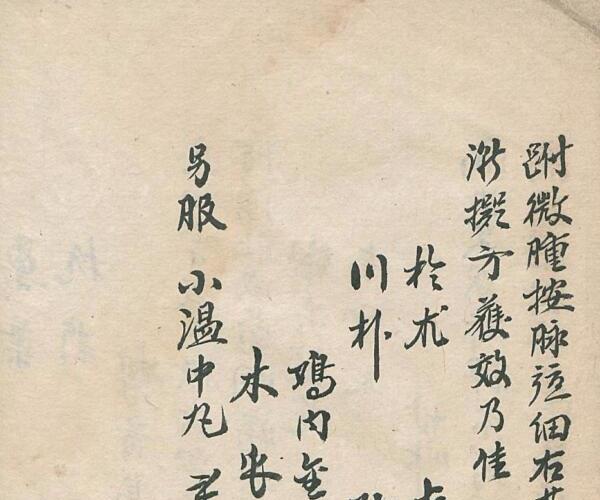 跗微腫按脉弦细右
漸擬方獲效乃佳
於朮
川朴
鳮内金
木
另服 小温中丸